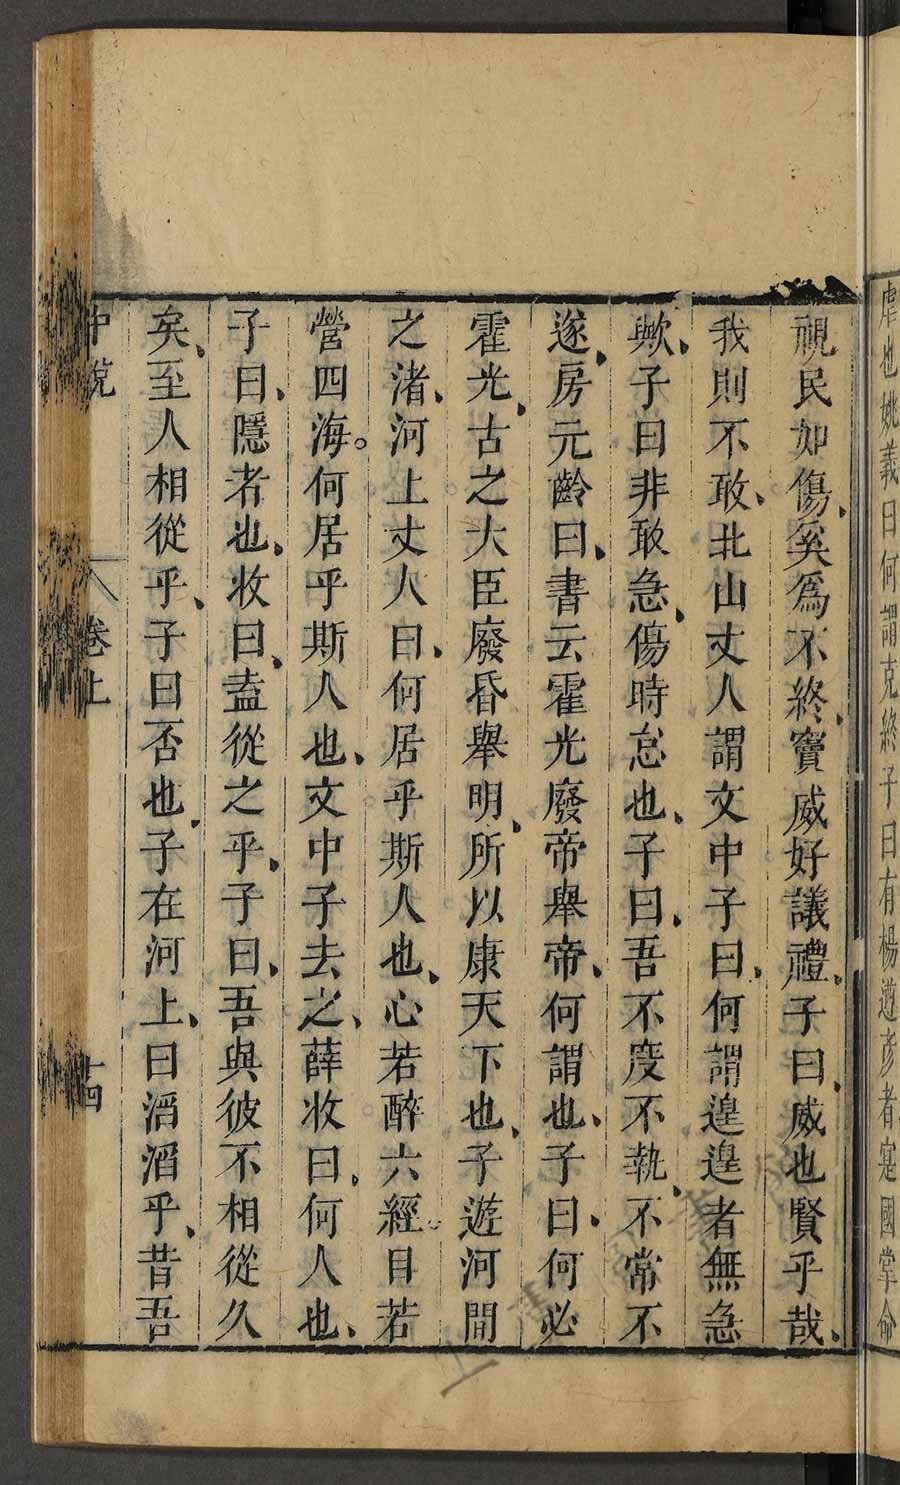 虐也姚義曰何謂克終子曰有楊遵彥者寔國掌命
視民如傷奚爲不終竇威好議禮子曰威也賢乎哉
我則不敢北山丈人謂文中子曰何謂遑遑者無急
歟子曰非敢急傷時怠也子曰吾不度不執不常不
遂房元齡曰書云霍光廢帝舉帝何謂也子曰何必
霍光古之大臣廢昏舉明所以康天下也子遊河間
之渚河上丈人曰何居乎斯人也心若醉六經目若
營四海何居乎斯人也文中子去之薛收曰何人也
子曰隱者也收曰盍從之乎子曰吾與彼不相從久
矣至人相從乎子曰否也子在河上曰滔滔乎昔吾
中說 卷上 十四